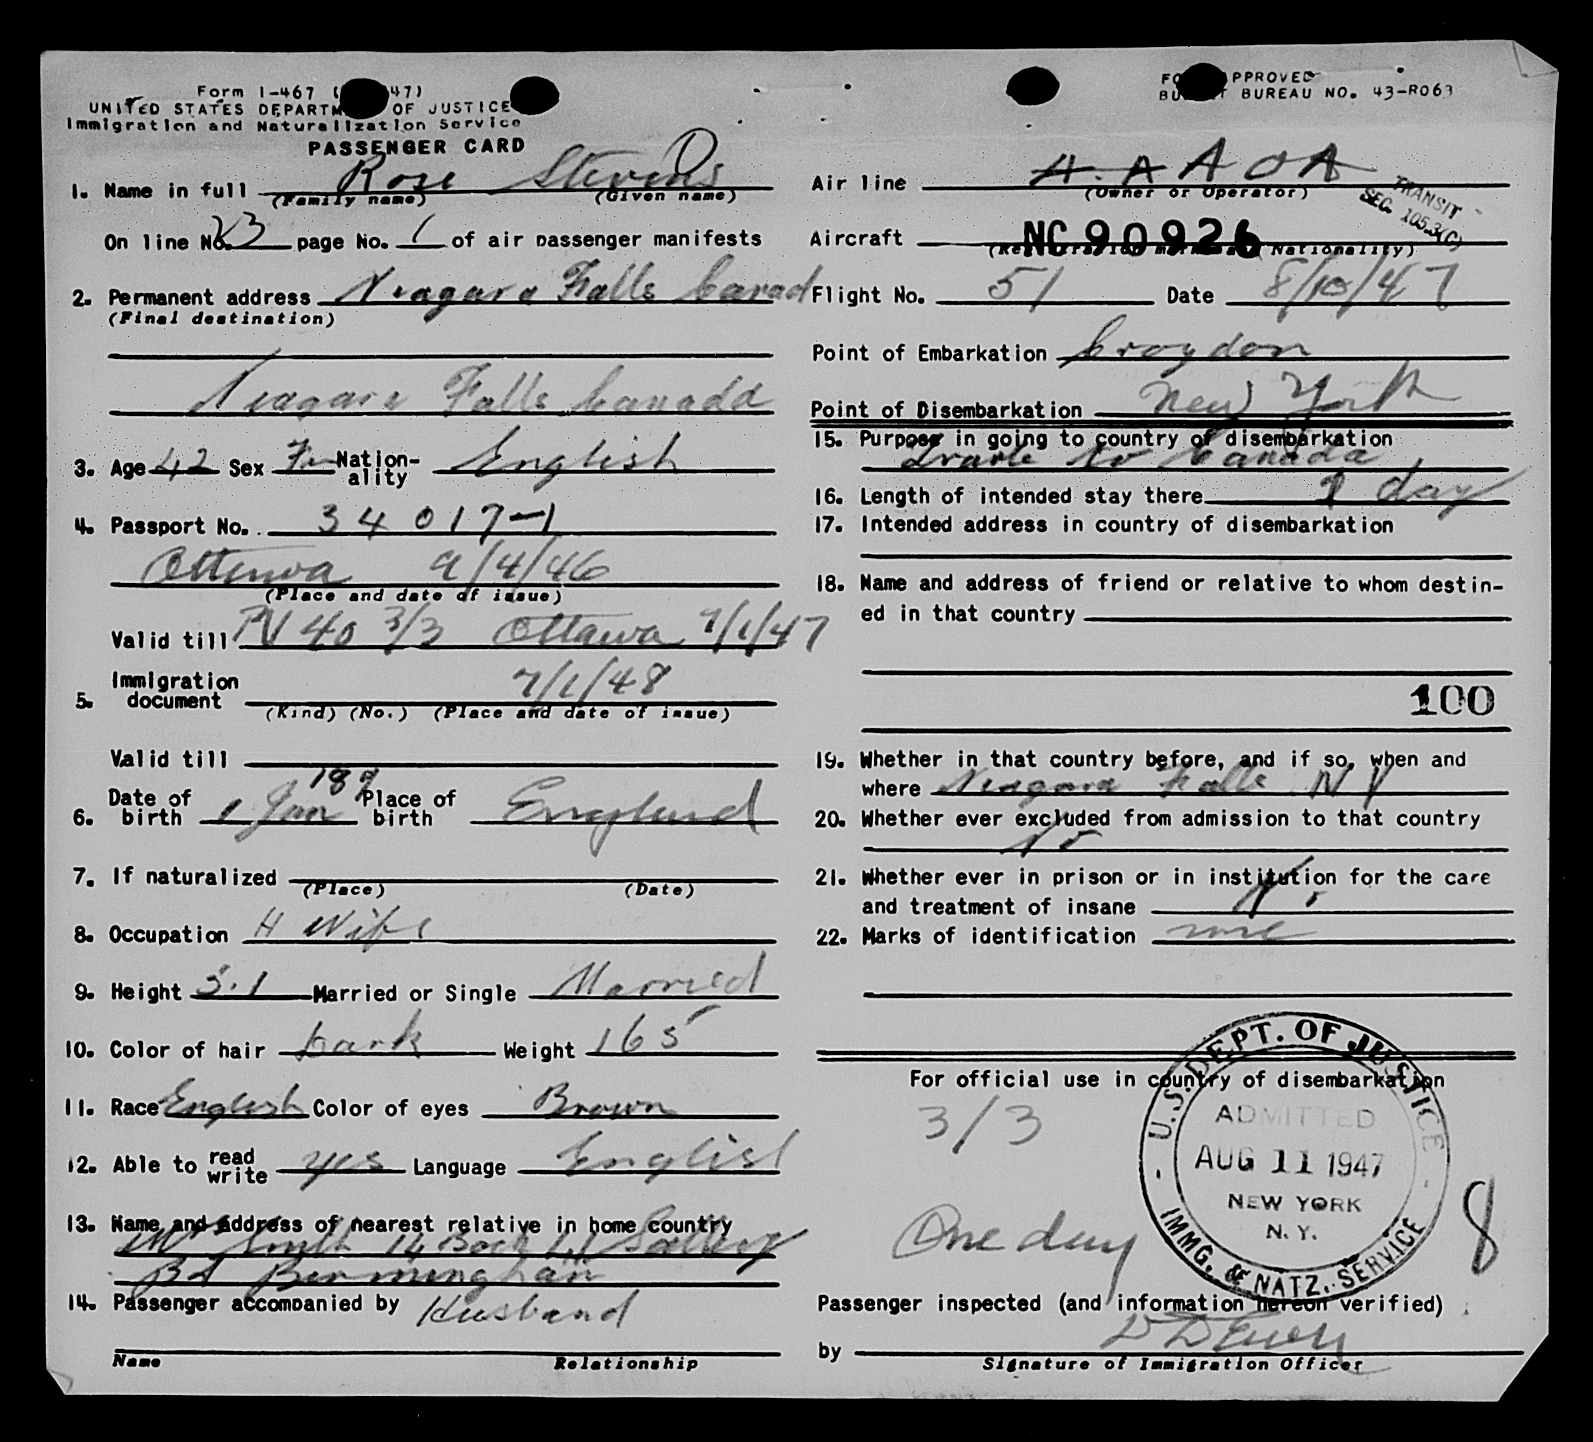 Form I-467 ( 47)
UNITED STATES DEPARTM OF JUSTICE
Immigration and Naturalization Service
PASSENGER CARD
1. Name in full Rose Stevens
(Family name) (Given name)
On line No. 23 page No. 1 of air passenger manifests
2. Permanent address Niagara Falls Canad
(Final destination)
Niagara Falls Canada
3. Age 42 Sex Fm Nation-
ality English
4. Passport No. 34017-1
Ottawa 9/4/46
(Place and date of issue)
Valid till PV 40 3/3 Ottawa 7/1/47
7/1/48
5. Immigration
document
(Kind) (No.) (Place and date of issue)
Valid till
6. Date of
birth 1 Jan Place of
birth England
7. If naturalized
(Place) (Date)
8. Occupation H Wife
9. Height 5.1 Married or Single Married
10. Color of hair Dark Weight 165
11. Race English Color of eyes Brown
12. Able to read
write yes Language English
13. Name and address of nearest relative in home country
Smith 14
Birmingham
14. Passenger accompanied by Husband
Name Relationship
FO APPROVED
BU T BUREAU NO. 43-R063
Air line A.A AOA
(Owner or Operator)
TRANSIT
SEC. 105.3(C)
Aircraft NC90926
(Re tration mar a Nationality)
Flight No. 51 Date 8/10/47
Point of Embarkation Croydon
Point of Disembarkation New York
15. Purpose in going to country of disembarkation
to Canada
16. Length of intended stay there 1 day
17. Intended address in country of disembarkation
18. Name and address of friend or relative to whom destin-
ed in that country
100
19. Whether in that country before, and if so, when and
where Niagara Falls NY
20. Whether ever excluded from admission to that country
No
21. Whether ever in prison or in institution for the care
and treatment of insane No
22. Marks of identification none
For official use in country of disembarkation
3/3
One day
U.S. DEPT. OF JUSTICE
ADMITTED
AUG 11 1947
NEW YORK
N.Y.
IMMG. & NATZ. SERVICE
8
Passenger inspected (and information hereon verified)
by
Signature of Immigration Officer